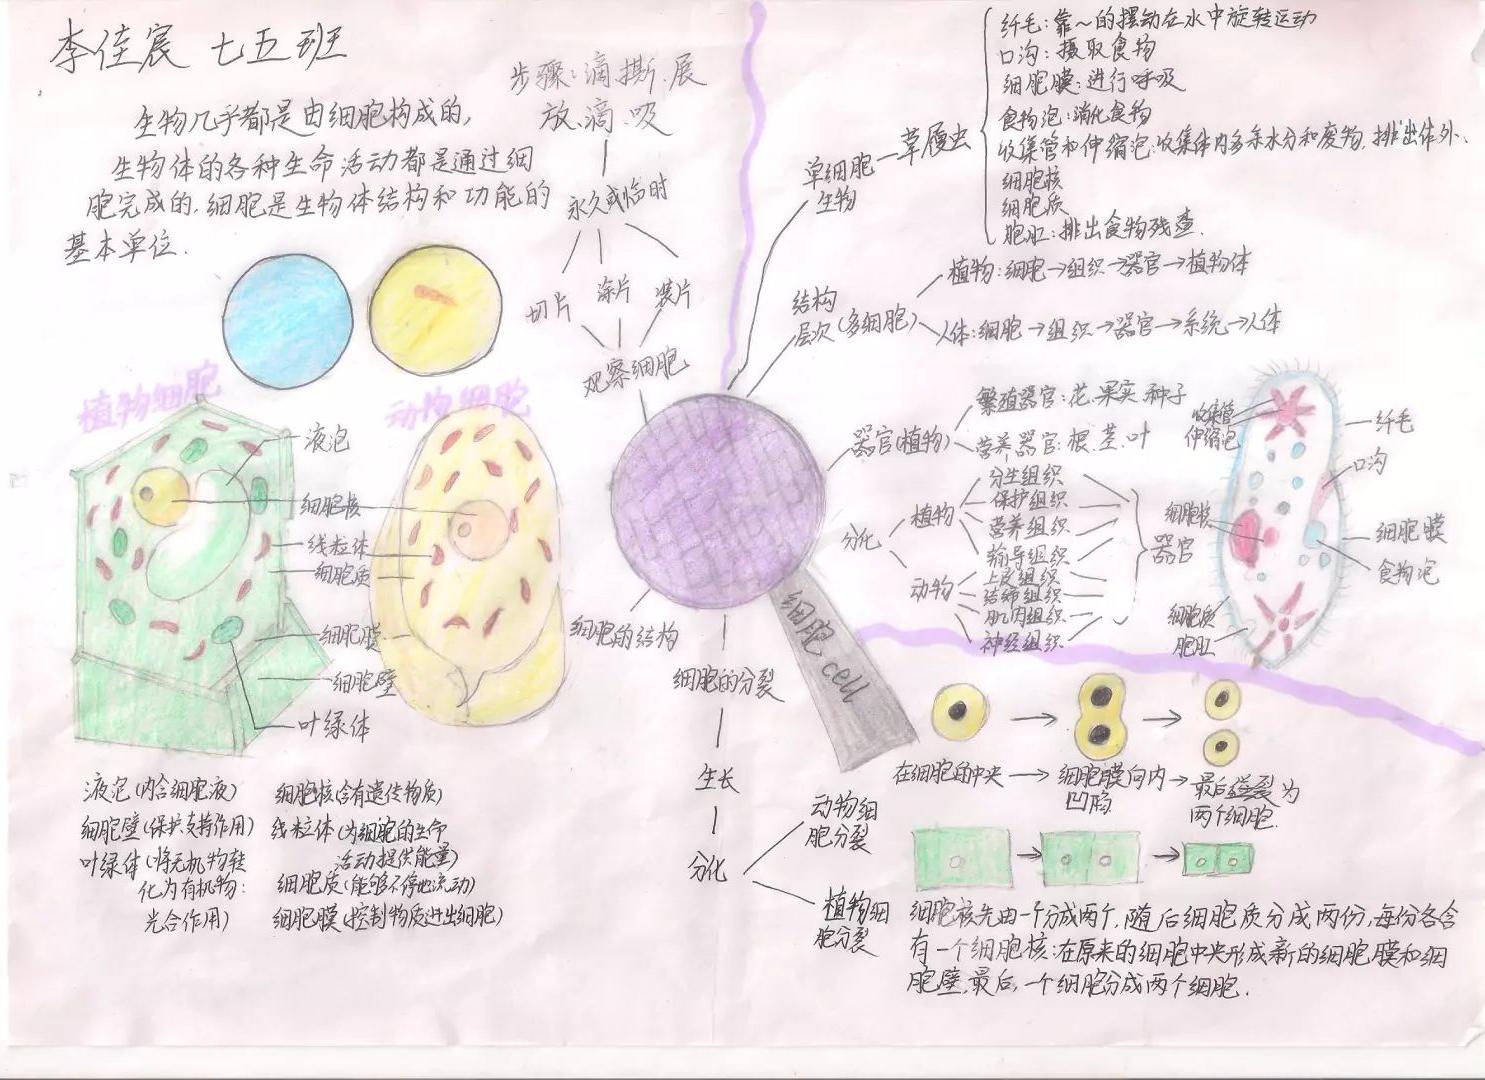 李佳宸 七五班
生物几乎都是由细胞构成的,
生物体的各种生命活动都是通过细
胞完成的.细胞是生物体结构和功能的
基本单位.
步骤:滴.撕.展
放.滴.吸
永久或临时
切片
涂片
装片
观察细胞
植物细胞
动物细胞
液泡
细胞核
线粒体
细胞质
细胞膜
细胞壁
叶绿体
液泡(内含细胞液)
细胞壁(保护.支持作用)
叶绿体(将无机物转
化为有机物:
光合作用)
细胞核(含有遗传物质)
线粒体(为细胞的生命
活动提供能量)
细胞质(能够不停地流动)
细胞膜(控制物质进出细胞)
细胞的结构
细胞cell
单细胞
生物
草履虫
纤毛:靠~的摆动在水中旋转运动
口沟:摄取食物
细胞膜:进行呼吸
食物泡:消化食物
收集管和伸缩泡:收集体内多余水分和废物,排出体外.
细胞核
细胞质
胞肛:排出食物残查.
结构
层次(多细胞)
植物:细胞→组织→器官→植物体
人体:细胞→组织→器官→系统→人体
器官(植物)
繁殖器官:花.果实.种子
营养器官:根.茎.叶
分化
植物
分生组织
保护组织
营养组织
输导组织
动物
上皮组织
结缔组织
肌肉组织
神经组织
器官
收集管
伸缩泡
纤毛
口沟
细胞核
细胞膜
食物泡
细胞质
胞肛
细胞的分裂
生长
分化
动物细
胞分裂
在细胞的中央→细胞膜向内凹陷→最后缢裂为两个细胞.
植物细
胞分裂
细胞核先由一个分成两个,随后细胞质分成两份,每份各含
有一个细胞核:在原来的细胞中央形成新的细胞膜和细
胞壁,最后,一个细胞分成两个细胞.